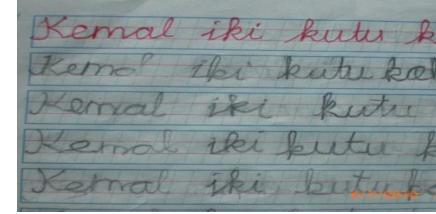 Kemal iki kutu k
Kemal iki kutu kal
Kemal iki kutu
Kemal iki kutu k
Kemal iki kutu ka